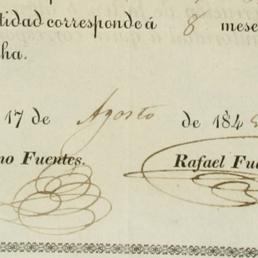 tidad corresponde á 8 mese
ha.
17 de Agosto de 184
no Fuentes. Rafael Fu